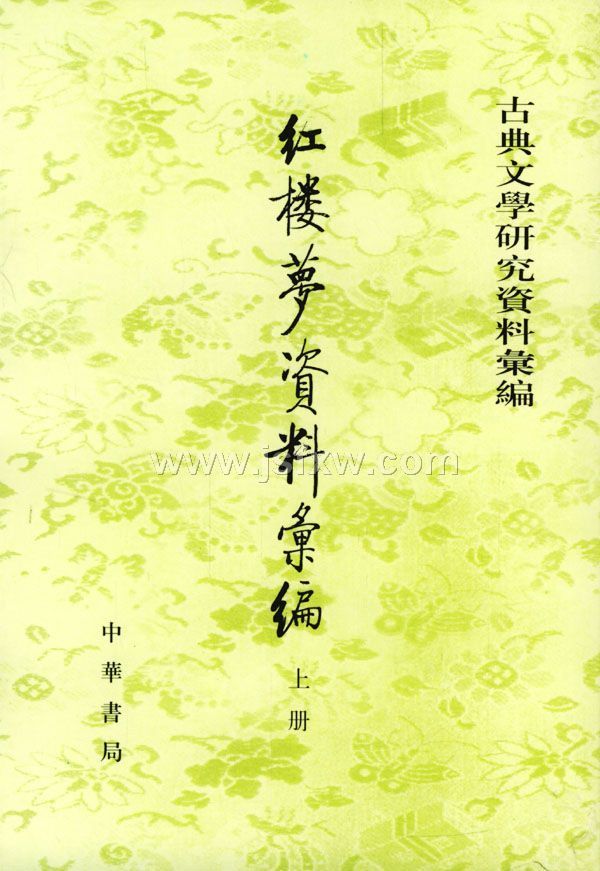 古典文學硏究資料彙編
红楼夢資料彙编
上册
中華書局
www.jsfxw.com